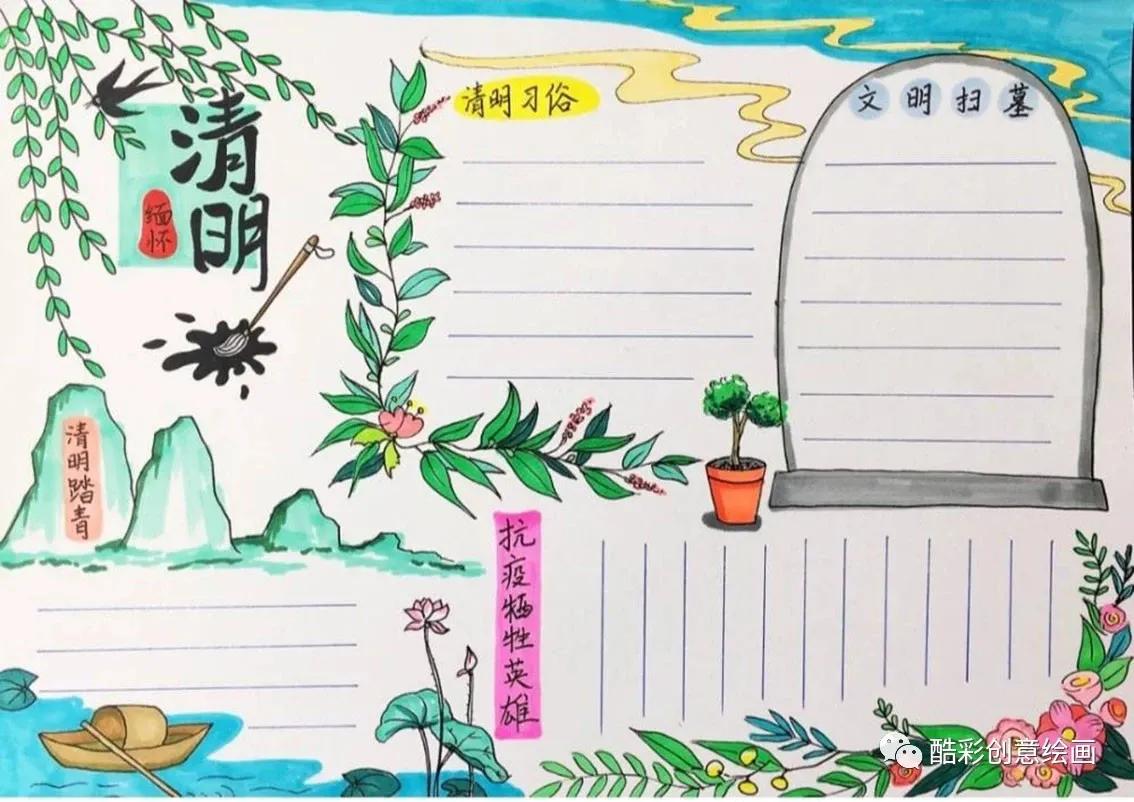 清明
缅怀
清明习俗
文明扫墓
清明踏青
抗疫牺牲英雄
酷彩创意绘画